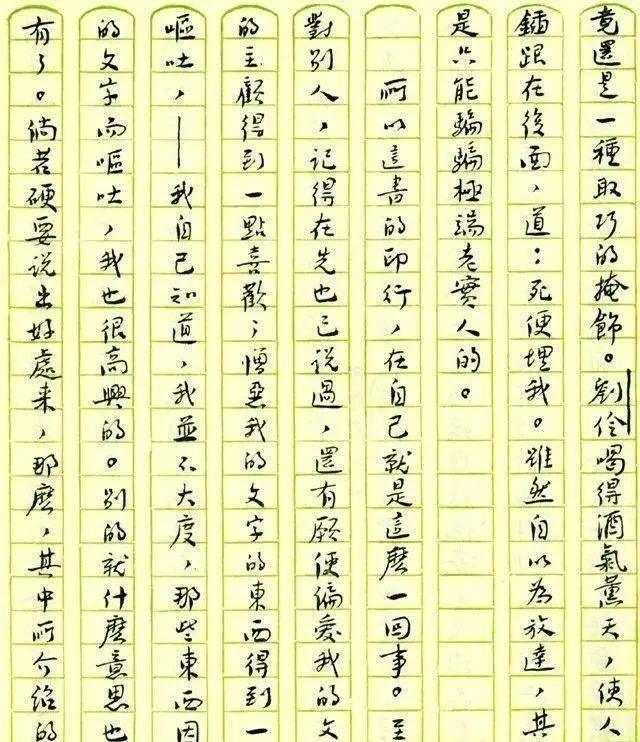 竟還是一種取巧的掩飾。劉伶喝得酒氣薰天，使人
鍤跟在後面，道：死便埋我。雖然自以為放達，其
是只能騙騙極端老實人的。
所以這書的印行，在自己就是這麼一回事。至
對別人，記得在先也已說過，還有願使偏愛我的文
的主顧得到一點喜歡；憎惡我的文字的東西得到一
嘔吐，——我自己知道，我並不大度，那些東西因
的文字而嘔吐，我也很高興的。別的就什麼意思也
有了。倘若硬要說出好處來，那麼，其中所介紹的